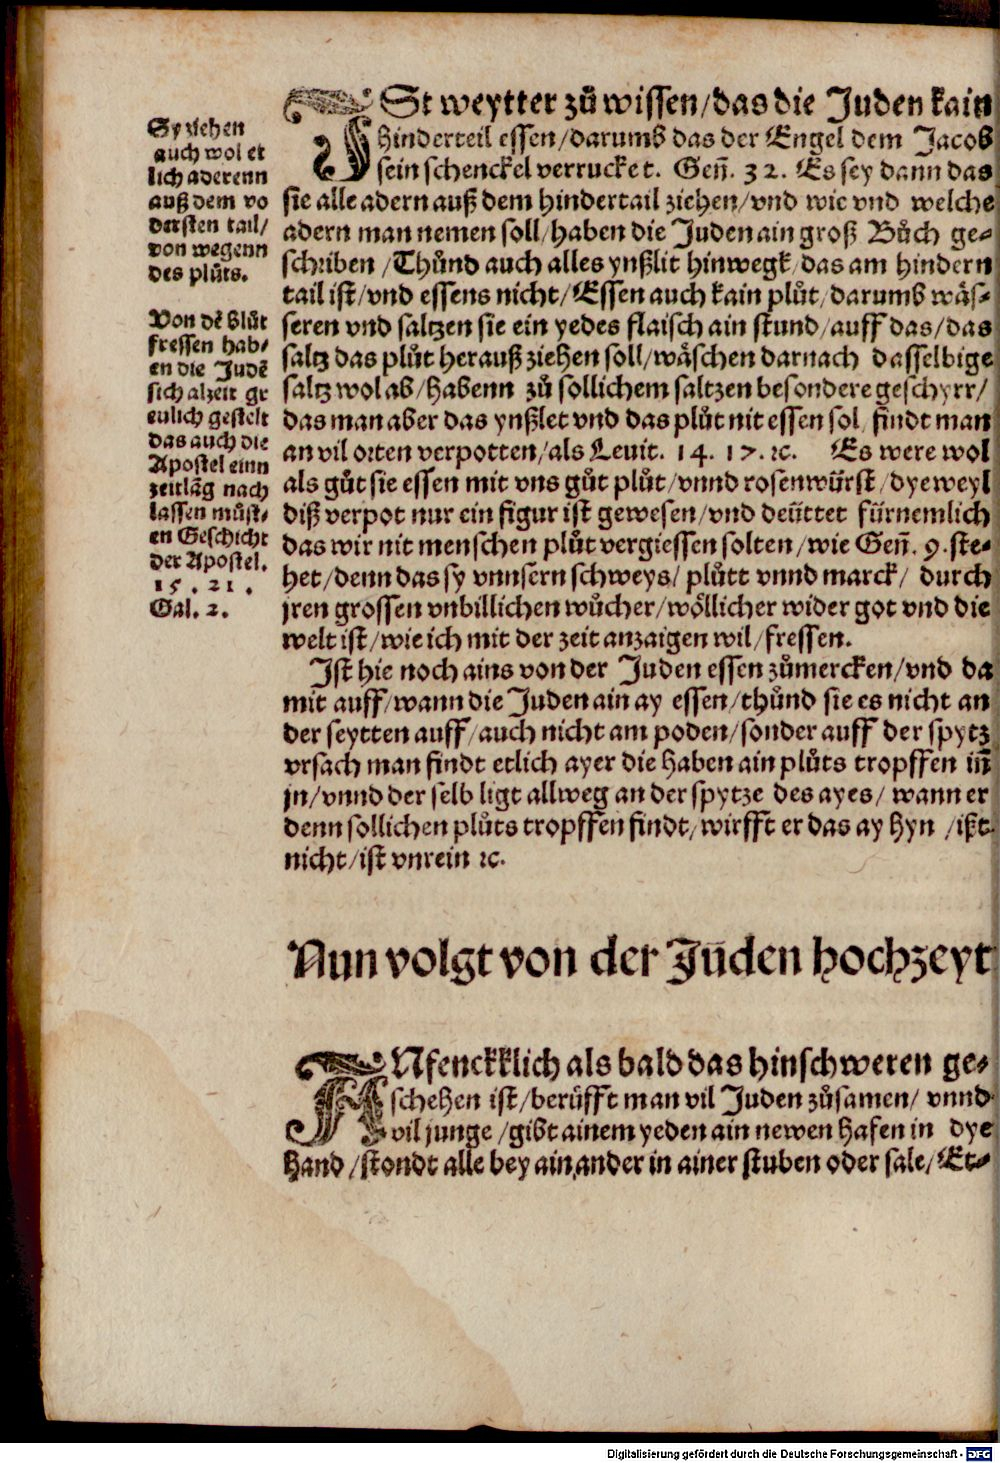 Sy ziehen
auch wol et
lich aderenn
auß dem vo
dersten tail/
von wegenn
des plůts.
Von dē blůt
fressen hab⸗
en die Judē
sich alzeit gr
eulich gestelt
das auch die
Apostel einn
zeitlāg nach
lassen můst⸗
en Geschicht
der Apostel.
15. 21.
Gal. 2.
ISt weytter zů wissen/das die Juden kain
hinderteil essen/darumb das der Engel dem Jacob
sein schenckel verrucket. Geñ. 32. Es sey dann das
sie alle adern auß dem hindertail ziehen/vnd wie vnd welche
adern man nemen soll/haben die Juden ain groß Bůch ge⸗
schriben/Thůnd auch alles ynßlit hinwegk/das am hindern
tail ist/vnd essens nicht/Essen auch kain plůt/darumb wäs⸗
seren vnd saltzen sie ein yedes flaisch ain stund/auff das/das
saltz das plůt herauß ziehen soll/wäschen darnach dasselbige
saltz wol ab/habenn zů sollichem saltzen besondere geschyrr/
das man aber das ynßlet vnd das plůt nit essen sol/findt man
an vil orten verpotten/als Leuit. 14. 17. ꝛc. Es were wol
als gůt sie essen mit vns gůt plůt/vnnd rosenwürst/dyeweyl
diß verpot nur ein figur ist gewesen/vnd deüttet fürnemlich
das wir nit menschen plůt vergiessen solten/wie Geñ. 9. ste⸗
het/denn das sy vnnsern schweys/plůtt vnnd marck/durch
jren grossen vnbillichen wůcher/wöllicher wider got vnd die
welt ist/wie ich mit der zeit anzaigen wil/fressen.
Ist hie noch ains von der Juden essen zůmercken/vnd da
mit auff/wann die Juden ain ay essen/thůnd sie es nicht an
der seytten auff/auch nicht am poden/sonder auff der spytz
vrsach man findt etlich ayer die haben ain plůts tropffen iñ
jn/vnnd der selb ligt allweg an der spytze des ayes/wann er
denn sollichen plůts tropffen findt/wirfft er das ay hyn/ißt
nicht/ist vnrein ꝛc.
Nun volgt von der Jüden hochzeyt
ANfenckklich als bald das hinschweren ge⸗
schehen ist/berüfft man vil Juden zůsamen/vnnd
vil junge/gibt ainem yeden ain newen hafen in dye
hand/stondt alle bey ain ander in ainer stuben oder sale/Et⸗
Digitalisierung gefördert durch die Deutsche Forschungsgemeinschaft - DFG